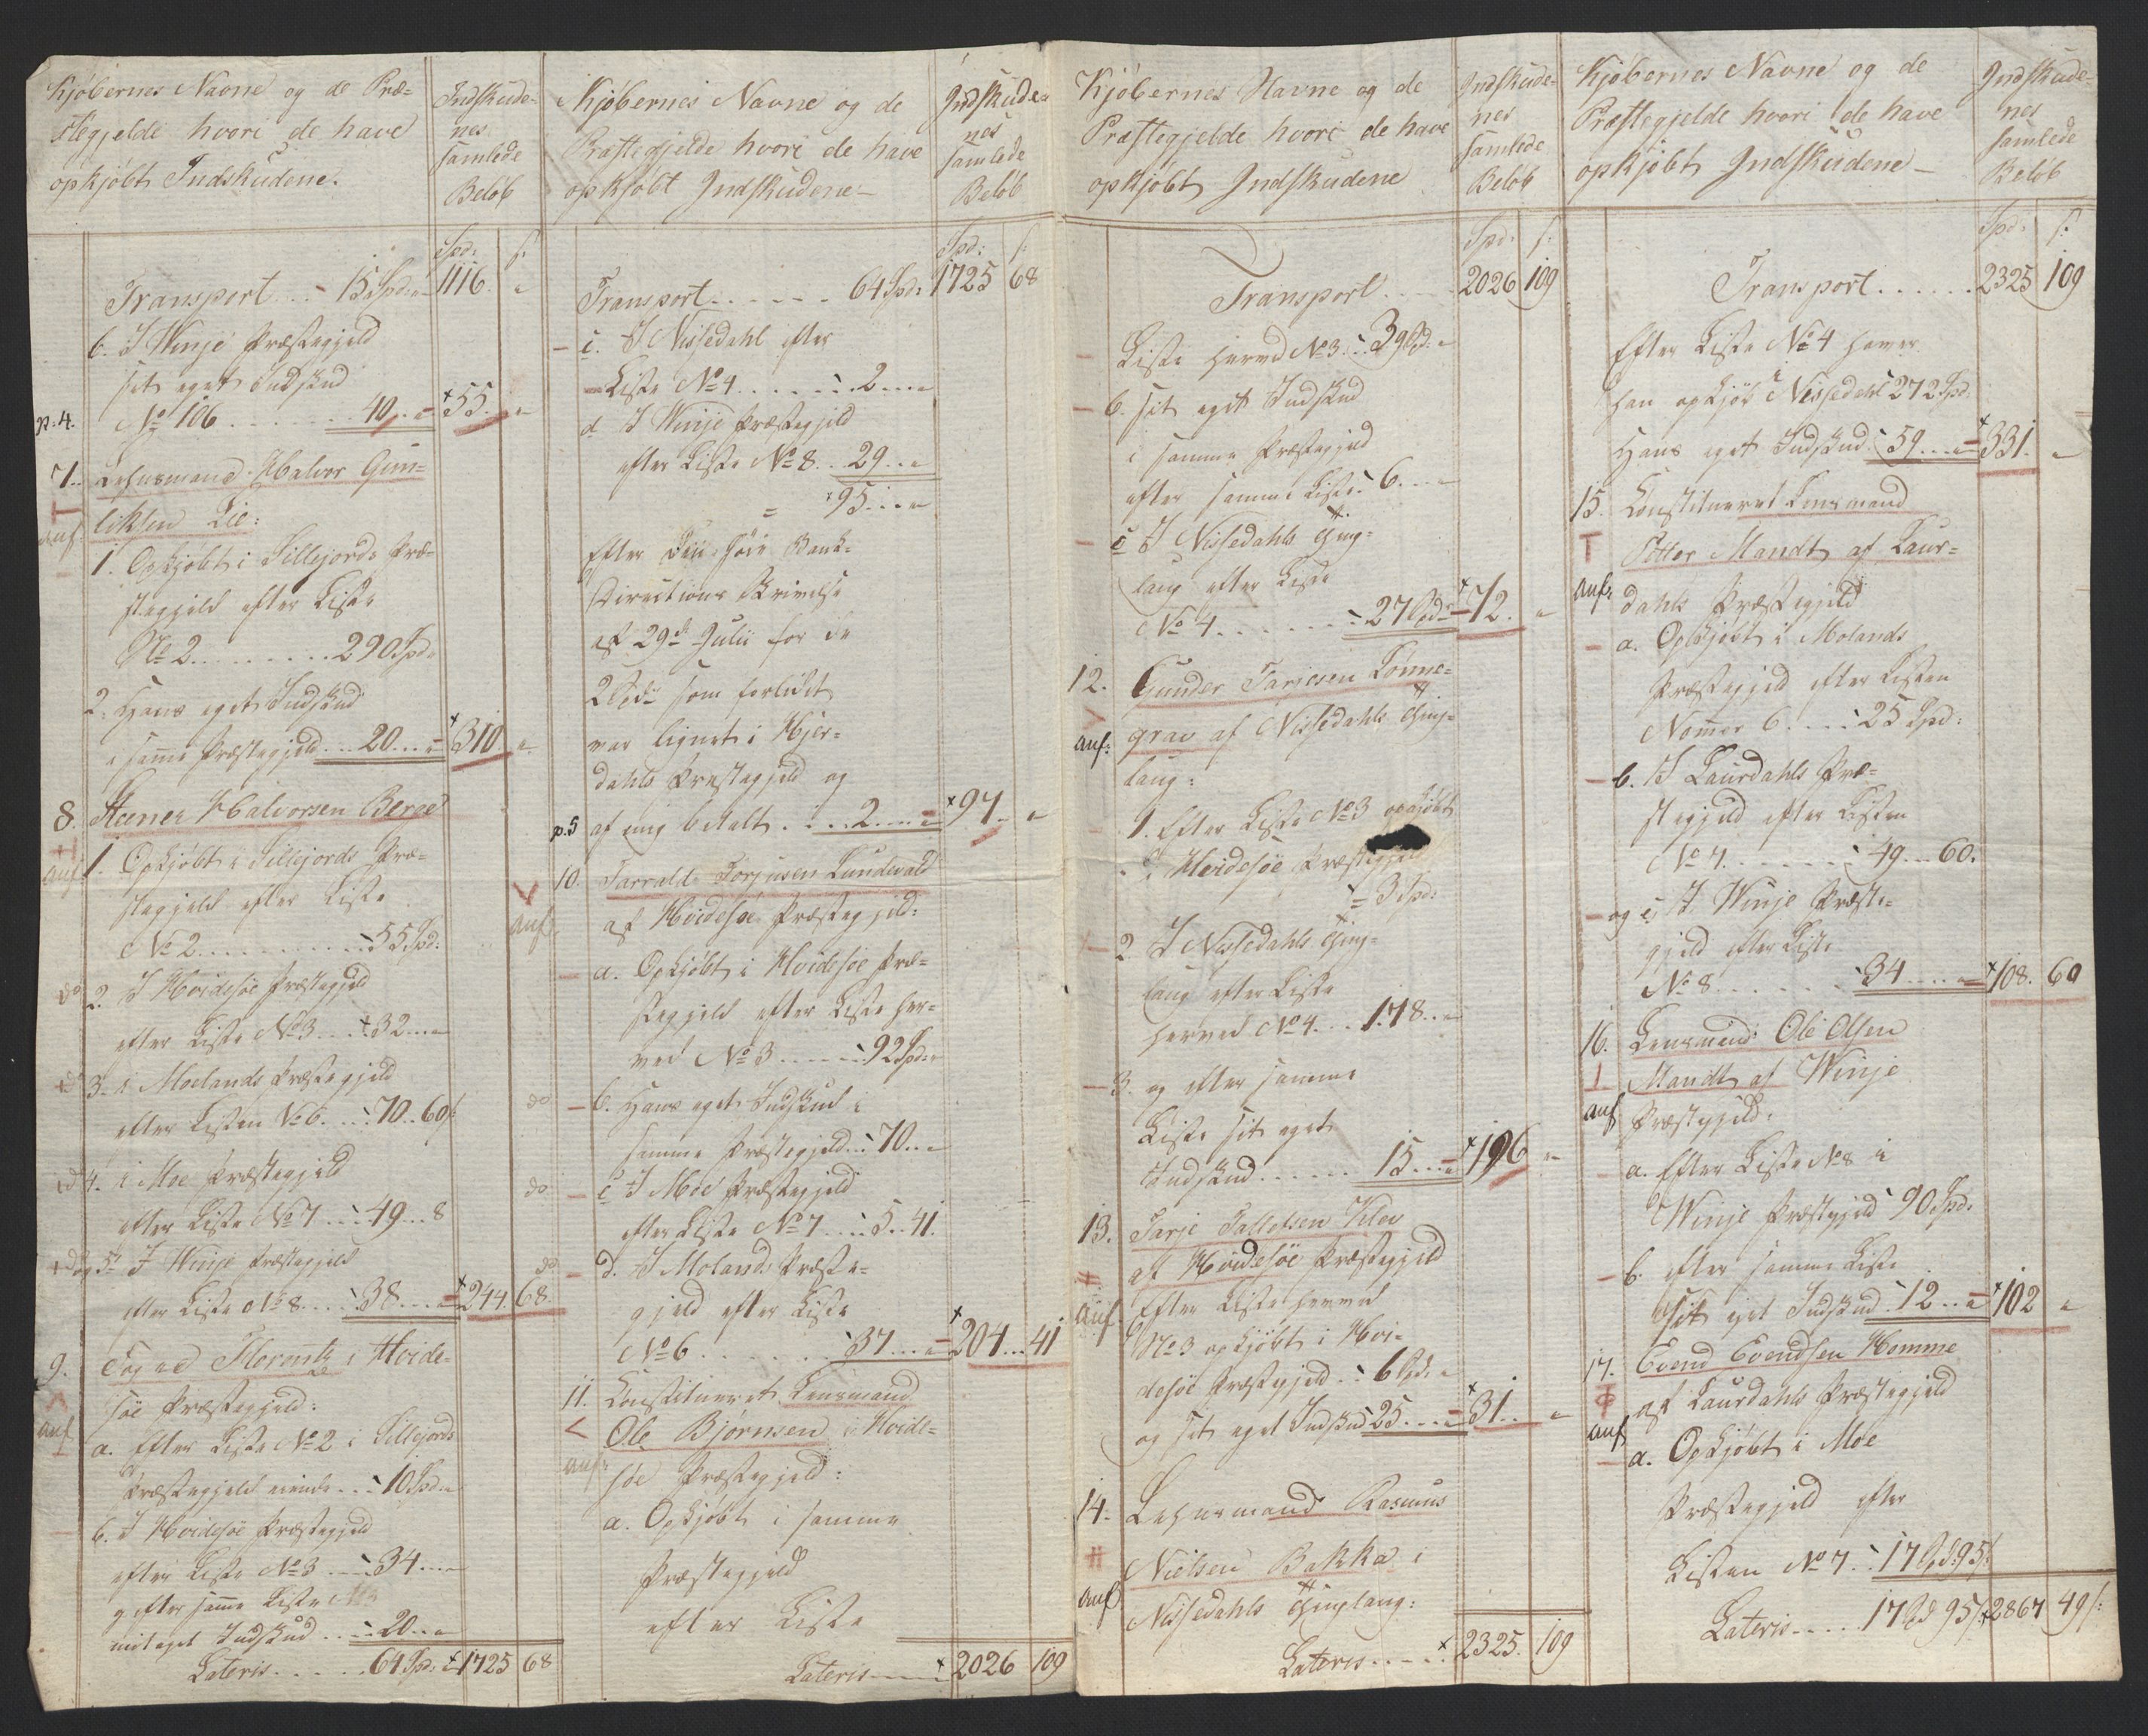 Kjøbernes Navne og de Præ-
stegjelde hvori de have
opkjøbt Indskudene.
Indskude-
nes
samlede
Beløb
Spd: s:
Transport . . - 15 Spd: " 1116. "
b. I Winje Præstegjeld
sit eget Indskud
p. 4. No 106 . . . . . . 40. . " 55. "
7. Lehnsmand Halvor Gun-
auf. leiksen Lie:
1. Opkjøbt i Sillejords Præ-
stegjeld efter Liste
No 2. . . . . . . . . 290 Spd:
2. Hans eget Indskud
i samme Præstegjeld . . 20 . . " 310 "
8. Steener Halvorsen Berge
auf. 1. Opkjøbt i Sillejords Præ-
stegjeld efter Liste
No 2. . . . . . . . . 55 Spd:
do 2. I Hvidesøe Præstegjeld
efter Liste No 3 . . . 32 . . "
do 3. i Molands Præstegjeld
efter Listen No 6. . . 70 . . 60 s
do 4. i Moe Præstegjeld
efter Liste No 7 . . . 49 . . 8
do og 5. I Winje Præstegjeld
efter Liste No 8. . . . 38 . . " 244. 68.
9. i Hvide-
søe Præstegjeld:
auf a. Efter Liste No 2 i Sillejords
Præstegjeld . . 10 Spd: "
b. I Hvidesøe Præstegjeld
efter Liste No 3 . . . 34 . . . "
og efter samme Liste
mit eget Indskud . . . 20 . . "
Lateris . . . . . 64 Spd: 1725 68
Kjøbernes Navne og de
Præstegjelde hvori de have
opkjøbt Indskudene -
Indskude-
nes
samlede
Beløb
Spd: s:
Transport . . . . . . 64 Spd: 1725 68
c. I Nissedahl efter
Liste No 4 . . . . . . 2 . . . "
d I Winje Præstegjeld
efter Liste No 8 . . 29 . . "
= 95 . . . "
Efter Bank-
Directions Skrivelse
af 29de Julii for de
2 Spd: som
var lignet i Hjer-
dahls Præstegjeld og
p. 5 af mig betalt . . . . 2 . . . " 97 . "
10. Tarrald Torjusen Lundevald
auf. af Hvidesøe Præstegjeld:
a. Opkjøbt i Hvidesøe Præ-
stegjeld efter Liste her-
ved No 3 . . . . . . 92 Spd: "
do b. Hans eget Indskud i
samme Præstegjeld . . . 70 . . "
do c I Moe Præstegjeld
efter Liste No 7 . . . . 5 . . 41.
do d. I Molands Præste-
gjeld efter Liste
No 6 . . . . . . . . 37 . . . " 204 . . 41
11. Constitueret Lensmand
Ole Bjørnsen i Hvide-
auf. søe Præstegjeld:
a. Opkjøbt i samme
Præstegjeld
efter Liste
Lateris . . . . 2026 109
Kjøbernes Navne og de
Præstegjelde hvori de have
opkjøbt Indskudene
Indskude-
nes
samlede
Beløb
Spd: s:
Transport . . . . 2026 109
Liste herved No 3 . . . 39 Spd: "
b. sit eget Indskud
i samme Præstegjeld
efter samme Liste . 6 . . . "
c I Nissedahls Thing-
laug efter Liste
No 4 . . . . . . . . 27 Spd: " 72 . "
12. Gunder Tarjesen Lønne-
auf: grav af Nissedahls Thing-
laug:
1. Efter Liste No 3 opkjøbt
i Hvidesøe Præstegjeld
= 3 Spd:
2 I Nissedahls Thing-
laug efter Liste
herved No 4 . . . 178 . . "
3. og efter samme
Liste sit eget
Indskud . . . . . . 15 . . . " 196 "
13. Tarje Vilev
af Hvidesøe Præstegjeld
auf. Efter Liste herved
No 3 opkjøbt i Hvi-
desøe Præstegjeld . . 6 Spd: "
og sit eget Indskud 25 . . . " 31 . . "
14. Lehnsmand Rasmus
Nielsen Bakka i
auf Nissedahls Thinglaug:
Lateris . . . . 2325. 109
Kjøbernes Navne og de
Præstegjelde hvori de have
opkjøbt Indskudene -
Indskude-
nes
samlede
Beløb
Spd: s:
Transport . . . . . . 2325 109
Efter Liste No 4 haver
han opkjøbt i Nissedahl 272 Spd:
Hans eget Indskud . 59 . . . " 331. "
15. Constitueret Lensmand
Petter Mandt af Laur-
auf. dahls Præstegjeld
a. Opkjøbt i Molands
Præstegjeld efter Listen
Nommer 6 . . . . 25 Spd:
b. I Laurdahls Præ-
stegjeld efter Listen
No 4 . . . . . . . 49 . . . 60.
og c. I Winje Præste-
gjeld efter Liste
No 8 . . . . . . . 34 . . . . " 108. 60
16. Lensmand Ole Olsen
Mandt af Winje
auf Præstegjeld.
a. Efter Liste No 8 i
Winje Præstegjeld 90 Spd:
b. efter samme Liste
sit eget Indskud . 12 . . " 102 "
17. Evend Evendsen Homme
af Laurdahls Præstegjeld
auf a. Opkjøbt i Moe
Præstegjeld efter
Listen No 7 . . 17 Spd: 95 s
Lateris . . . . . 17 Spd 95 s 2867 49 s: